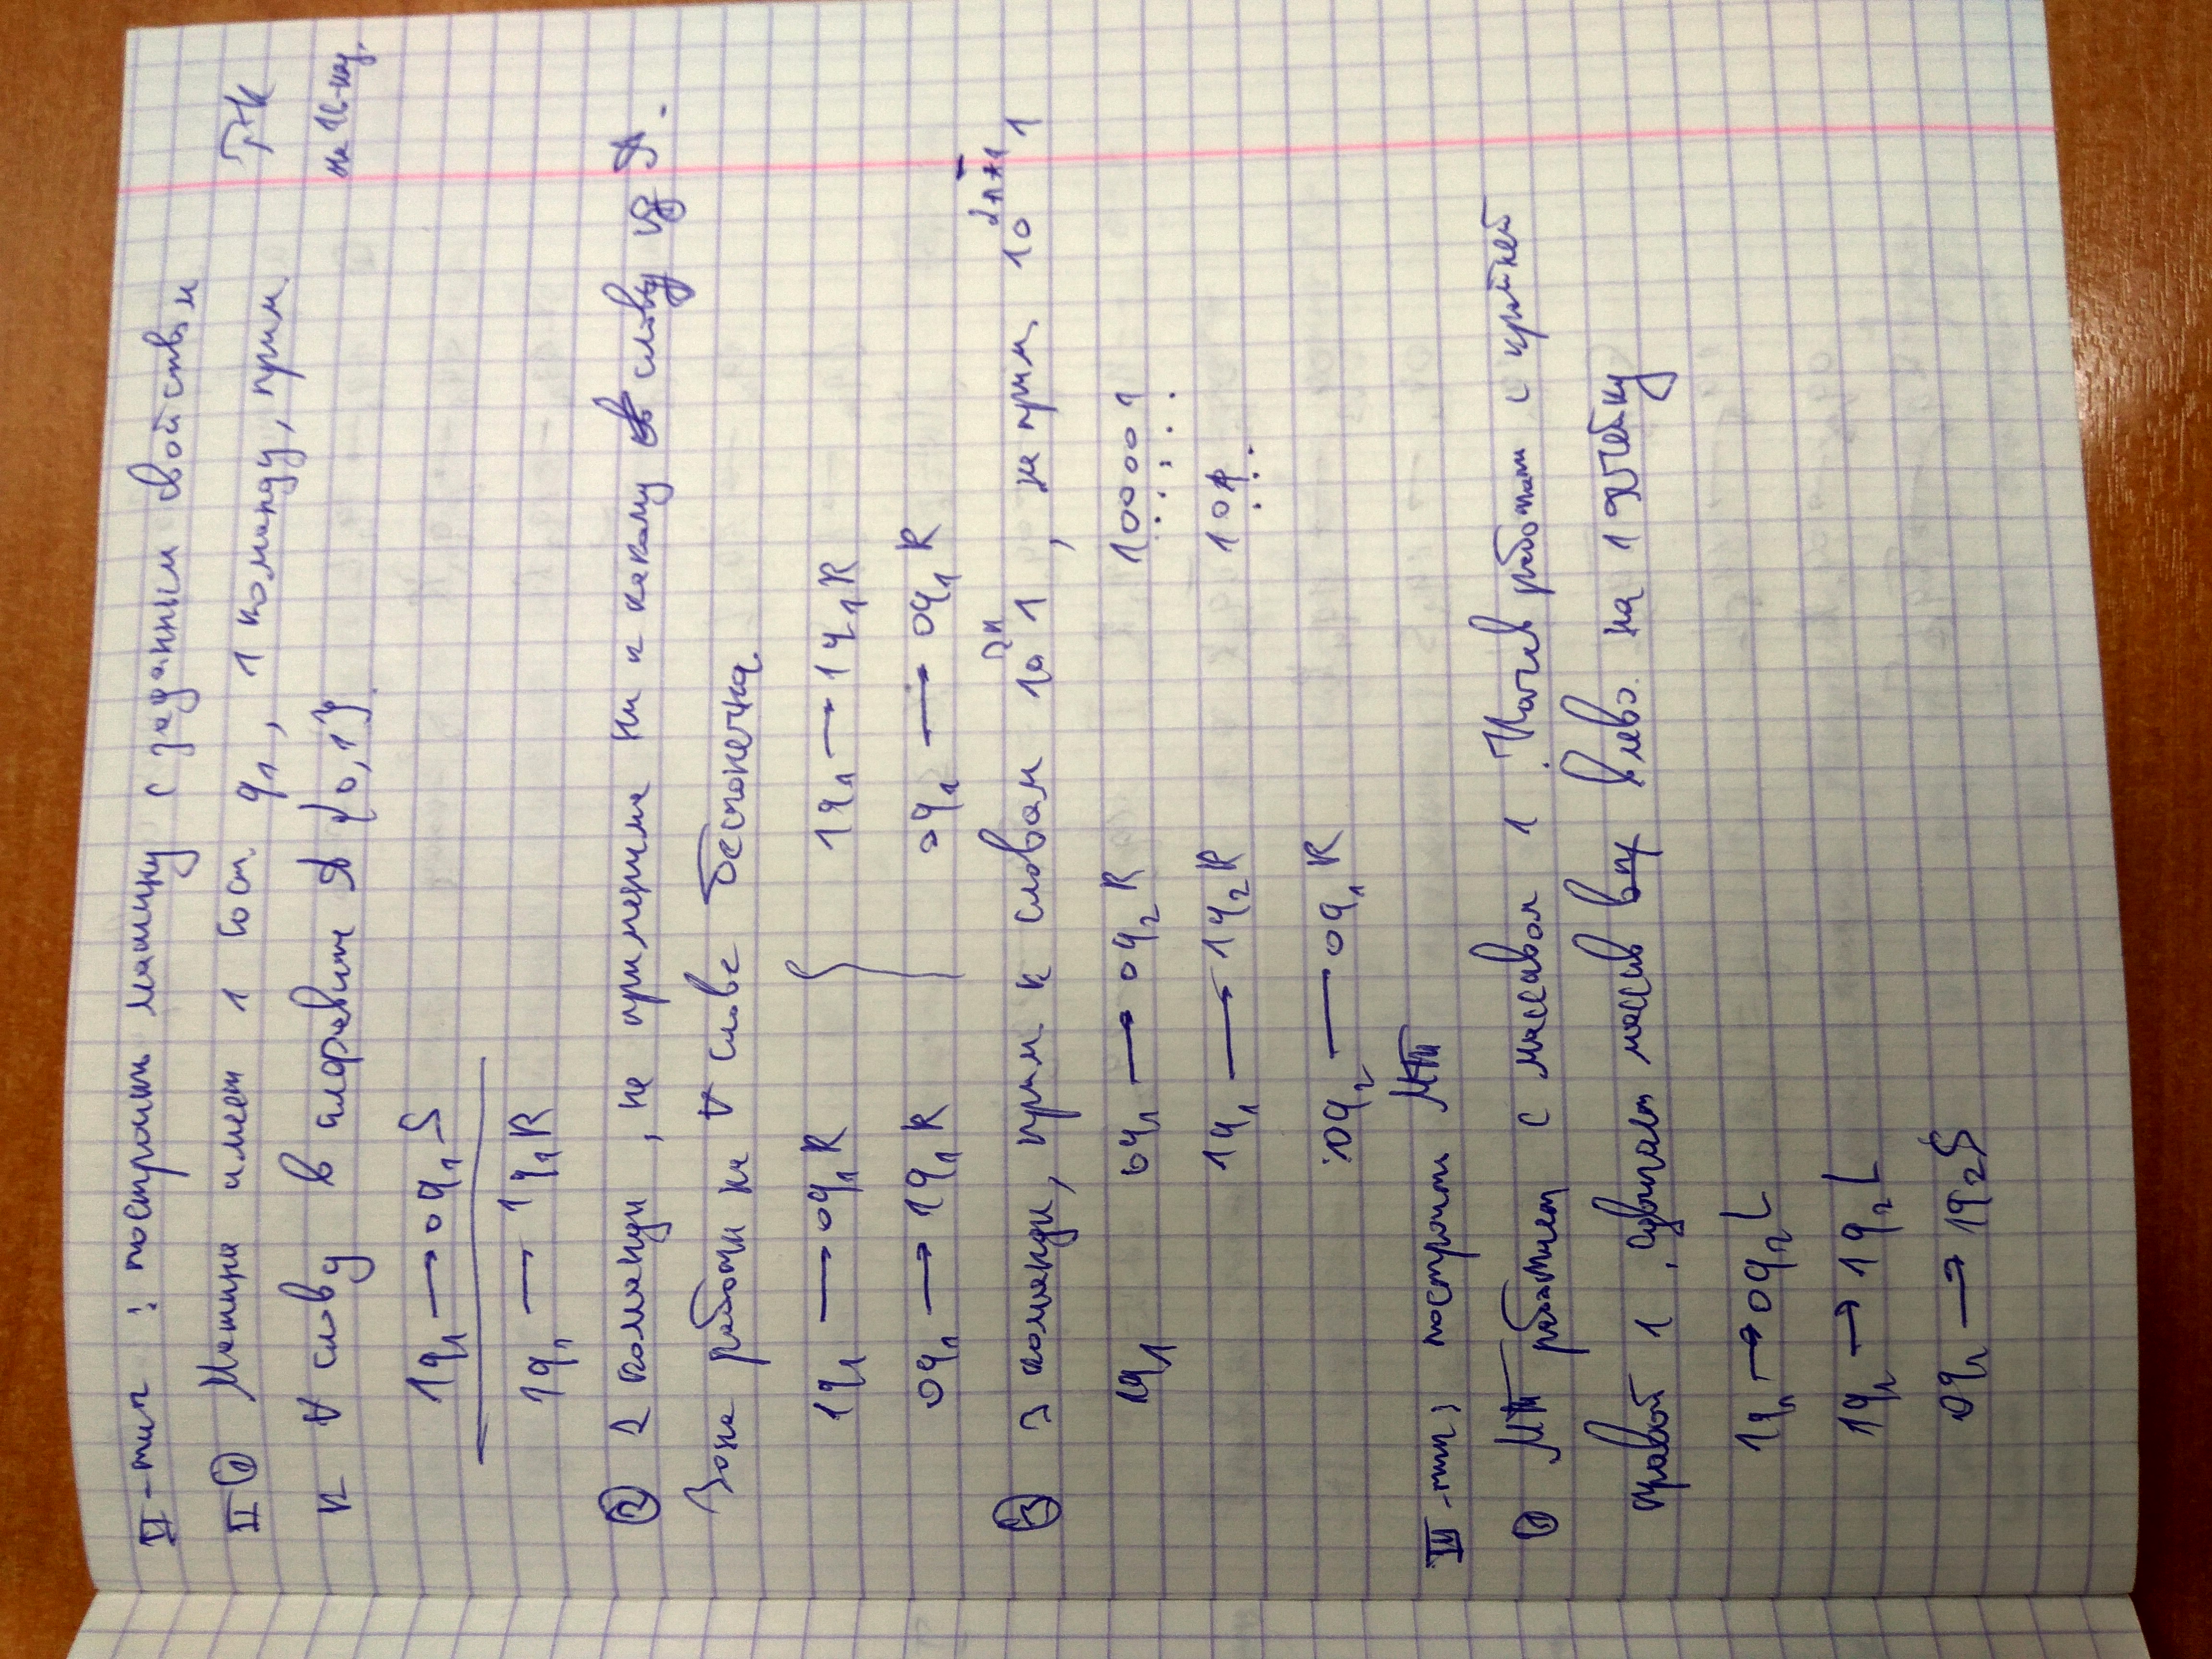 II - тип : построить машину с заданным свойствами
II ① Машина имеет 1 сост. q₁, 1 команду, прим. ТК
к ∀ слову в алфавит A {0,1}. на 16-
1q₁ → 0q₁S
1q₁ → 1q₁R
② 2 команды, не применима ни к какому слову из A.
Зона работы на ∀ слове бесконечна.
1q₁ → 0q₁R { 1q₁ → 1q₁R
0q₁ → 1q₁R 0q₁ → 0q₁R
③ 3 команды, прим к словам 10²ⁿ1, не прим. 10²ⁿ⁺¹1
1q₁ 0q₁ → 0q₂R 100001
1q₁ → 1q₂R 101
0q₂ → 0q₁R
III - тип; построить МТ
① МТ работает с массивом 1. Начав работать с крайней
правой 1, сдвигает массив влево на 1 ячейку
1q₁ → 0q₂L
1q₂ → 1q₂L
0q₂ → 1q₂S